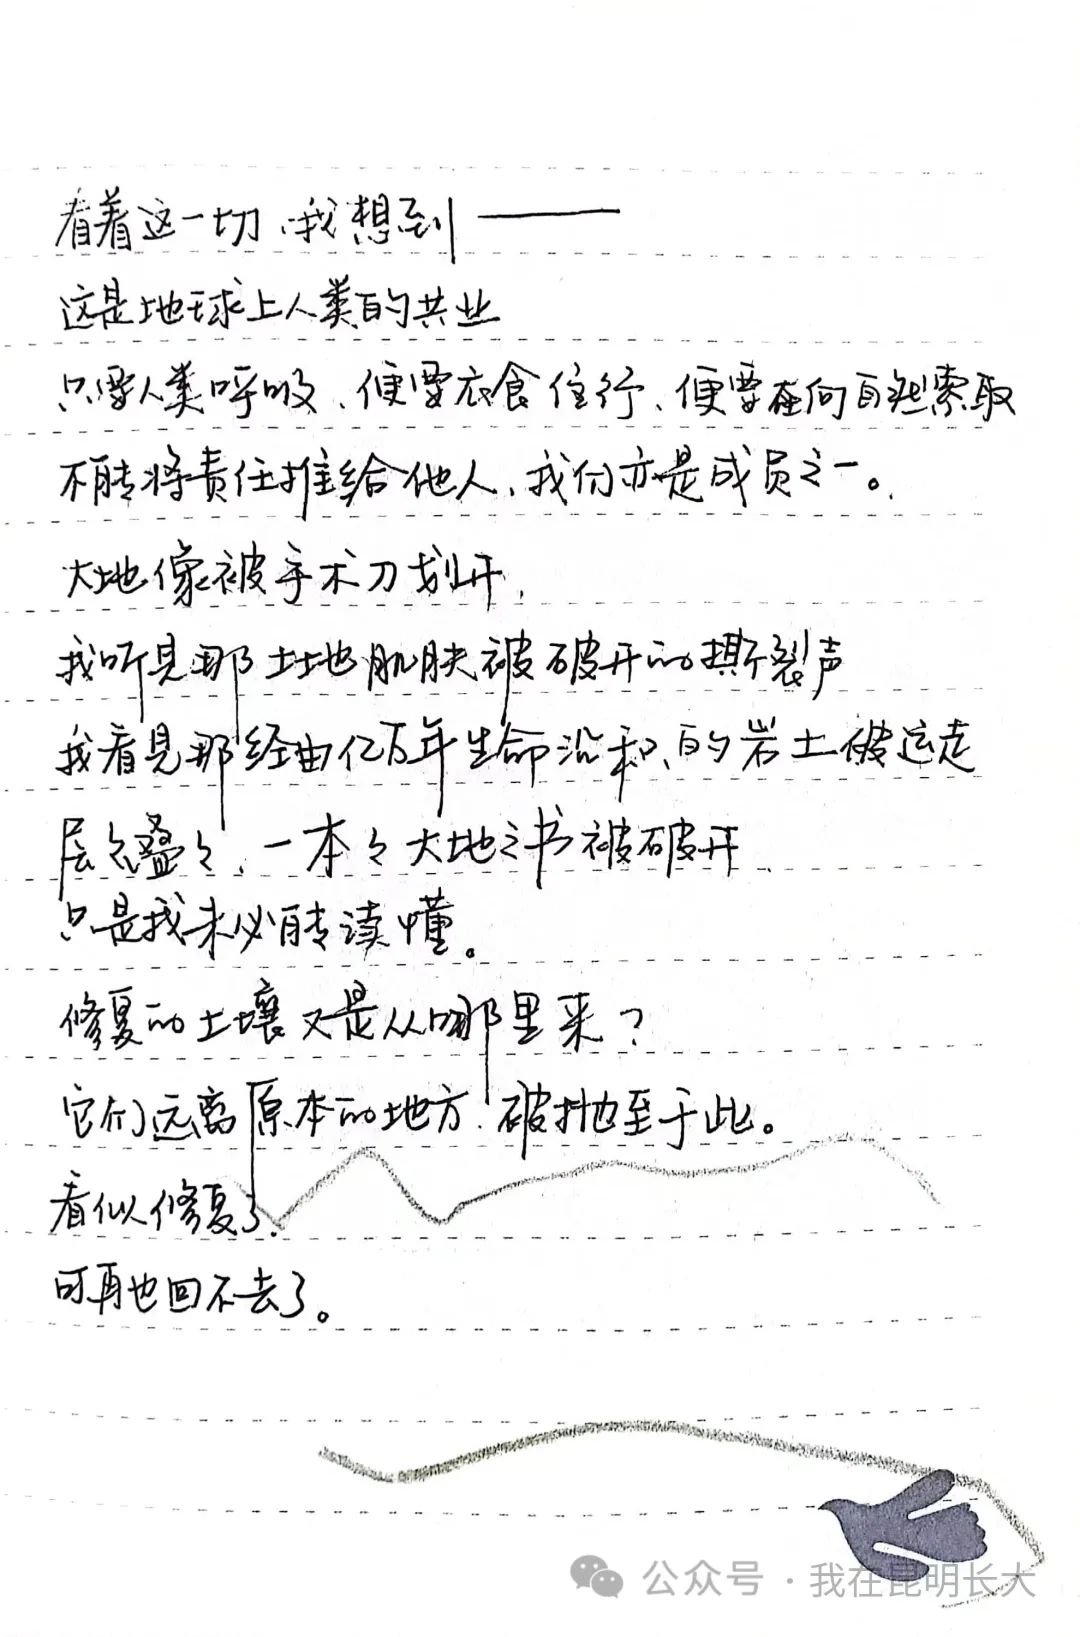 看着这一切,我想到——
这是地球上人类的共业
只要人类呼吸、便要衣食住行、便要在向自然索取
不能将责任推给他人、我们亦是成员之一。
大地像被手术刀划开,
我听见那土地肌肤被破开的撕裂声
我看见那经由亿万年生命沉积的岩土被运走
层々叠々、一本々大地之书被破开
只是我未必能读懂。
修复的土壤又是从哪里来?
它们远离原本的地方、被抛至于此。
看似修复了、
可再也回不去了。
公众号·我在昆明长大